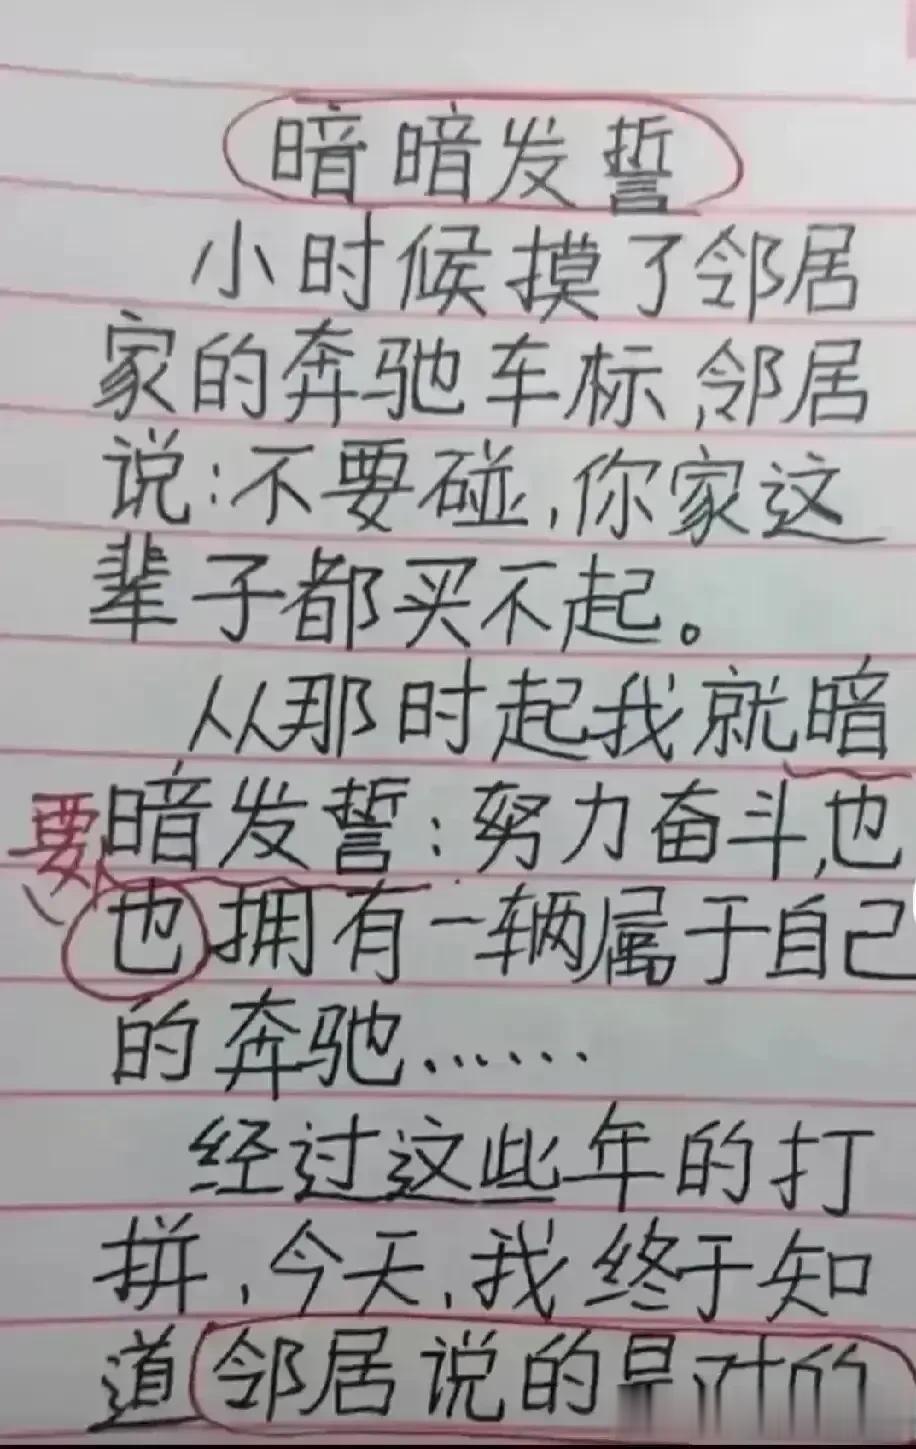 暗暗发誓
小时候摸了邻居
家的奔驰车标,邻居
说:不要碰,你家这
辈子都买不起。
从那时起我就暗
暗发誓:努力奋斗,也
要
也拥有一辆属于自己
的奔驰……
经过这些年的打
拼,今天,我终于知
道邻居说的是对的